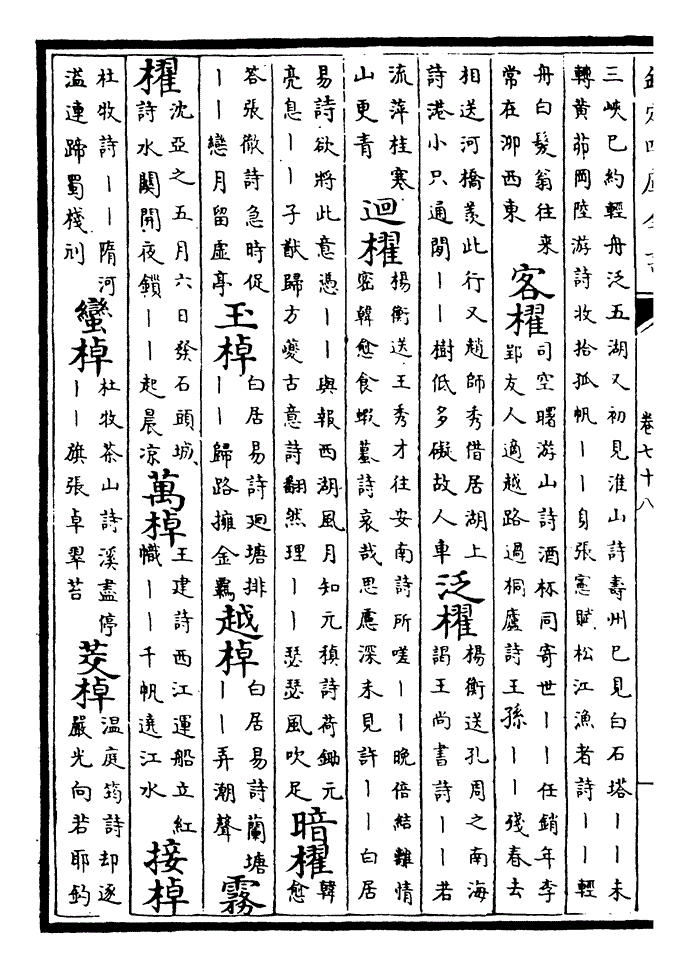 欽定四庫全書
卷七十八
一
三峽已約輕舟泛五湖又初見淮山詩壽州已見白石塔――未
轉黃茆岡陸游詩收拾孤帆――身張憲賦松江漁者詩――輕
舟白髮翁往來
常在泖西東
客櫂
司空曙游山詩酒杯同寄世――任銷年李
郢友人適越路過桐廬詩王孫――殘春去
相送河橋羨此行又趙師秀借居湖上
詩港小只通閒――樹低多礙故人車
泛櫂
楊衡送孔周之南海
謁王尚書詩――若
流萍桂寒
山更青
迴櫂
楊衡送王秀才往安南詩所嗟――晚倍結離情
密韓愈食蝦蟇詩哀哉思慮深未見許――白居
易詩欲將此意憑――與報西湖風月知元稹詩荷鋤元
亮息――子猷歸方夔古意詩翻然理――瑟瑟風吹足
暗櫂
韓
愈
答張徹詩急時促
――戀月留虛亭
玉棹
白居易詩廻塘排
――歸路擁金羈
越棹
白居易詩蘭塘
――弄潮聲
霧
櫂
沈亞之五月六日發石頭城
詩水闊開夜鎖――起晨凉
萬棹
王建詩西江運船立紅
幟――千帆遶江水
接棹
杜牧詩――隋河
溢連蹄蜀棧刓
蠻棹
杜牧茶山詩溪盡停
――旗張卓翠苔
茭棹
溫庭筠詩却逐
嚴光向若耶釣